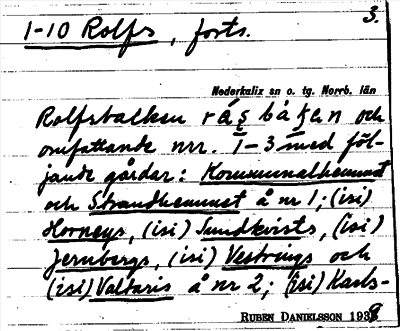 3.
1-10 Rolfs, forts.
Nederkalix sn o. tg. Norrb. län
Rolfsbalken och
omfattande nrr. 1-3 med föl-
jande gårdar: Kommunalhemmet
och Strandhemmet å nr 1; (isi)
Horneys, (isi) Sundkvists, (isi)
Jernbergs, (isi) Vestrings och
(isi) Valtaris å nr 2; (isi) Karls-
RUBEN DANIELSSON 1938